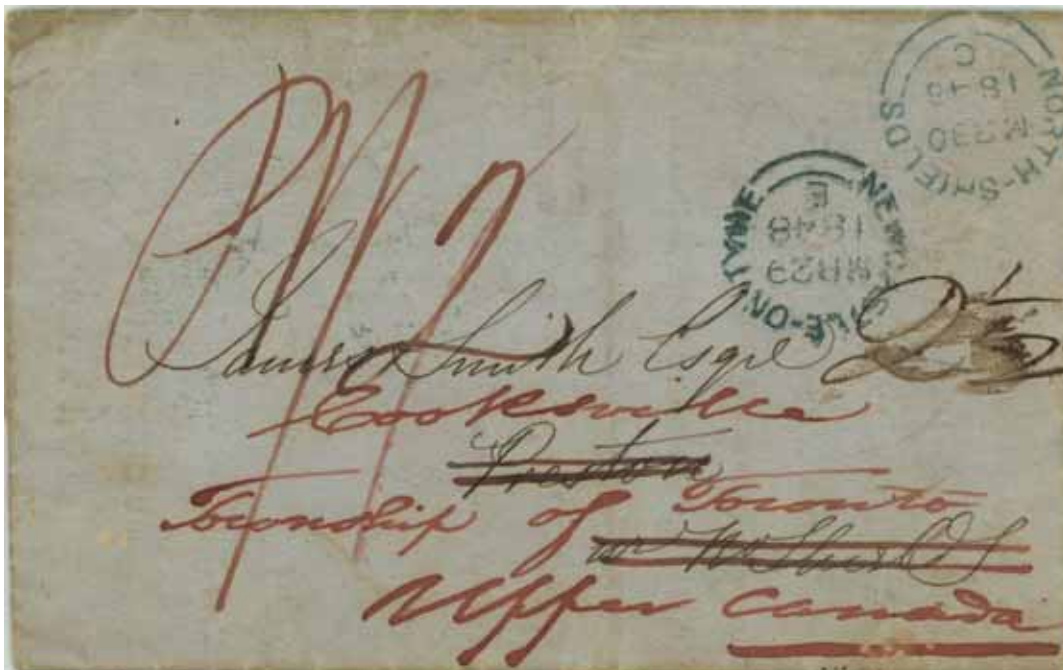 NORTH-SHIELDS
MR 30
1848
C
NEWCASTLE-ON-TYNE
MR 29
1848
E
James Smith Esqre
Cooksville
Preston
Township of Toronto
nr
Upper Canada